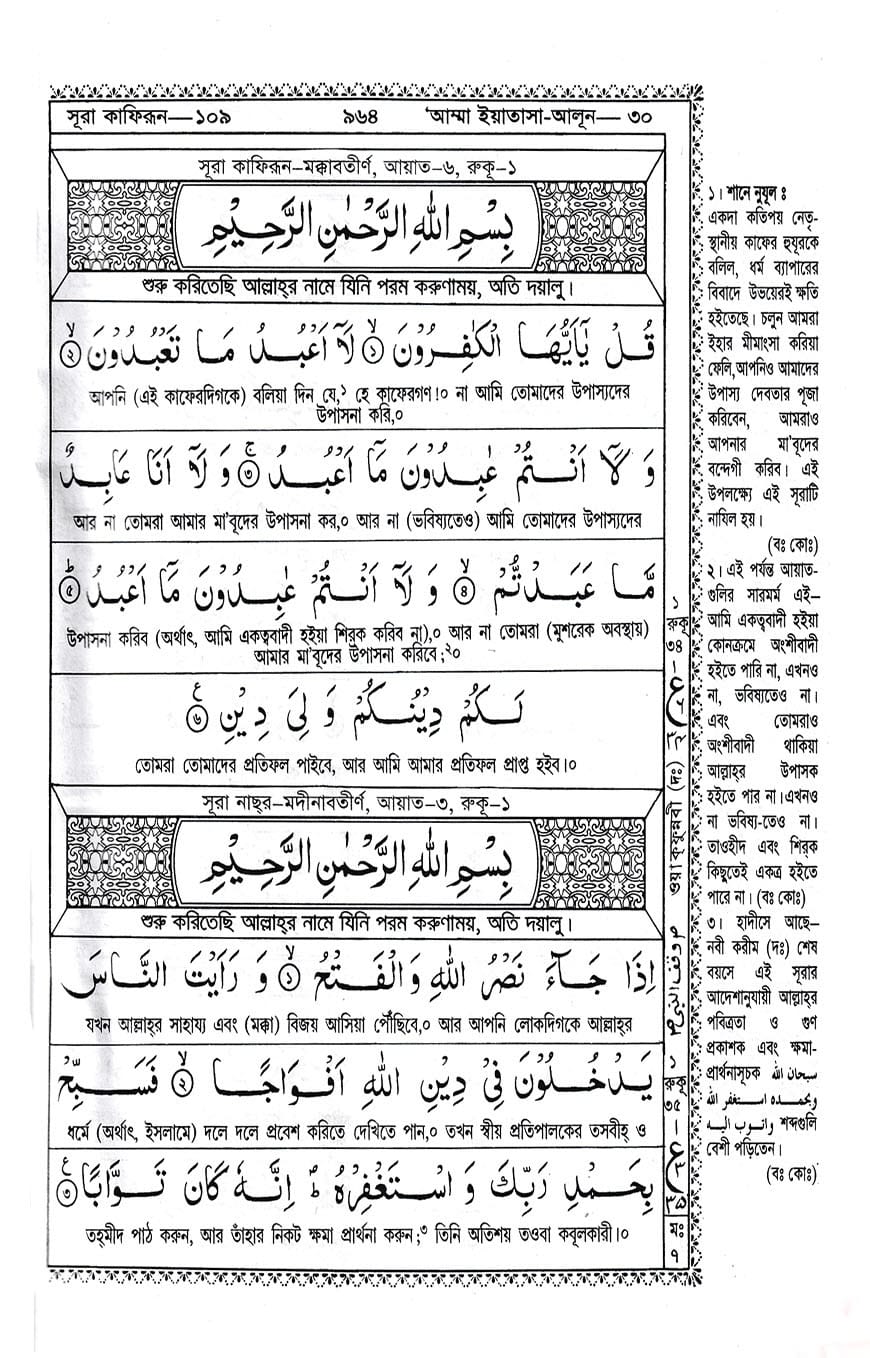 সূরা কাফিরূন—১০৯ ৯৬৪ ‘আম্মা ইয়াতাসা-আলূন— ৩০
সূরা কাফিরূন–মক্কাবতীর্ণ, আয়াত–৬, রুকূ–১
بِسْمِ اللهِ الرَّحْمٰنِ الرَّحِيْمِ
শুরু করিতেছি আল্লাহ্‌র নামে যিনি পরম করুণাময়, অতি দয়ালু।
قُلْ يٰۤاَيُّهَا الْكٰفِرُوْنَ ۙ‏﴿۱﴾ لَاۤ اَعْبُدُ مَا تَعْبُدُوْنَ ۙ﴿۲﴾
আপনি (এই কাফেরদিগকে) বলিয়া দিন যে,১ হে কাফেরগণ!০ না আমি তোমাদের উপাস্যদের
উপাসনা করি,০
وَ لَاۤ اَنْتُمْ عٰبِدُوْنَ مَاۤ اَعْبُدُ ۚ﴿۳﴾ وَ لَاۤ اَنَا عَابِدٌ
আর না তোমরা আমার মা’বূদের উপাসনা কর,০ আর না (ভবিষ্যতেও) আমি তোমাদের উপাস্যদের
مَّا عَبَدْتُّمْ ۙ﴿۴﴾ وَ لَاۤ اَنْتُمْ عٰبِدُوْنَ مَاۤ اَعْبُدُ ؕ﴿۵﴾
উপাসনা করিব (অর্থাৎ, আমি একত্ববাদী হইয়া শিরক করিব না),০ আর না তোমরা (মুশরেক অবস্থায়)
আমার মা’বূদের উপাসনা করিবে;২০
لَكُمْ دِيْنُكُمْ وَ لِيَ دِيْنِ ﴿۶﴾
তোমরা তোমাদের প্রতিফল পাইবে, আর আমি আমার প্রতিফল প্রাপ্ত হইব।০
সূরা নাছর–মদীনাবতীর্ণ, আয়াত–৩, রুকূ–১
بِسْمِ اللهِ الرَّحْمٰنِ الرَّحِيْمِ
শুরু করিতেছি আল্লাহ্‌র নামে যিনি পরম করুণাময়, অতি দয়ালু।
اِذَا جَآءَ نَصْرُ اللهِ وَالْفَتْحُ ۙ﴿۱﴾ وَ رَاَيْتَ النَّاسَ
যখন আল্লাহ্‌র সাহায্য এবং (মক্কা) বিজয় আসিয়া পৌঁছিবে,০ আর আপনি লোকদিগকে আল্লাহ্‌র
يَدْخُلُوْنَ فِيْ دِيْنِ اللهِ اَفْوَاجًا ۙ﴿۲﴾ فَسَبِّحْ
ধর্মে (অর্থাৎ, ইসলামে) দলে দলে প্রবেশ করিতে দেখিতে পান,০ তখন স্বীয় প্রতিপালকের তসবীহ্‌ ও
بِحَمْدِ رَبِّكَ وَ اسْتَغْفِرْهُ ؕ اِنَّهٗ كَانَ تَوَّابًا ﴿۳﴾
তহ্‌মীদ পাঠ করুন, আর তাঁহার নিকট ক্ষমা প্রার্থনা করুন;৩ তিনি অতিশয় তওবা কবূলকারী।০
১
রুকূ
৩৪
ع
ওয়াক্বফুন্নবী (দঃ)
وقف النبى
১
রুকূ
৩৫
ع
মঃ
৭
১। শানে নুযূল ঃ
একদা কতিপয় নেতৃ-
স্থানীয় কাফের হুযূরকে
বলিল, ধর্ম ব্যাপারের
বিবাদে উভয়েরই ক্ষতি
হইতেছে। চলুন আমরা
ইহার মীমাংসা করিয়া
ফেলি,আপনিও আমাদের
উপাস্য দেবতার পূজা
করিবেন, আমরাও
আপনার মা’বূদের
বন্দেগী করিব। এই
উপলক্ষ্যে এই সূরাটি
নাযিল হয়।
(বঃ কোঃ)
২। এই পর্যন্ত আয়াত-
গুলির সারমর্ম এই–
আমি একত্ববাদী হইয়া
কোনক্রমে অংশীবাদী
হইতে পারি না, এখনও
না, ভবিষ্যতেও না।
এবং তোমরাও
অংশীবাদী থাকিয়া
আল্লাহ্‌র উপাসক
হইতে পার না।এখনও
না ভবিষ্য-তেও না।
তাওহীদ এবং শির্‌ক
কিছুতেই একত্র হইতে
পারে না। (বঃ কোঃ)
৩। হাদীসে আছে–
নবী করীম (দঃ) শেষ
বয়সে এই সূরার
আদেশানুযায়ী আল্লাহ্‌র
পবিত্রতা ও গুণ
প্রকাশক এবং ক্ষমা-
প্রার্থনাসূচক سبحان الله
وبحمده استغفر الله
واتوب اليه শব্দগুলি
বেশী পড়িতেন।
(বঃ কোঃ)